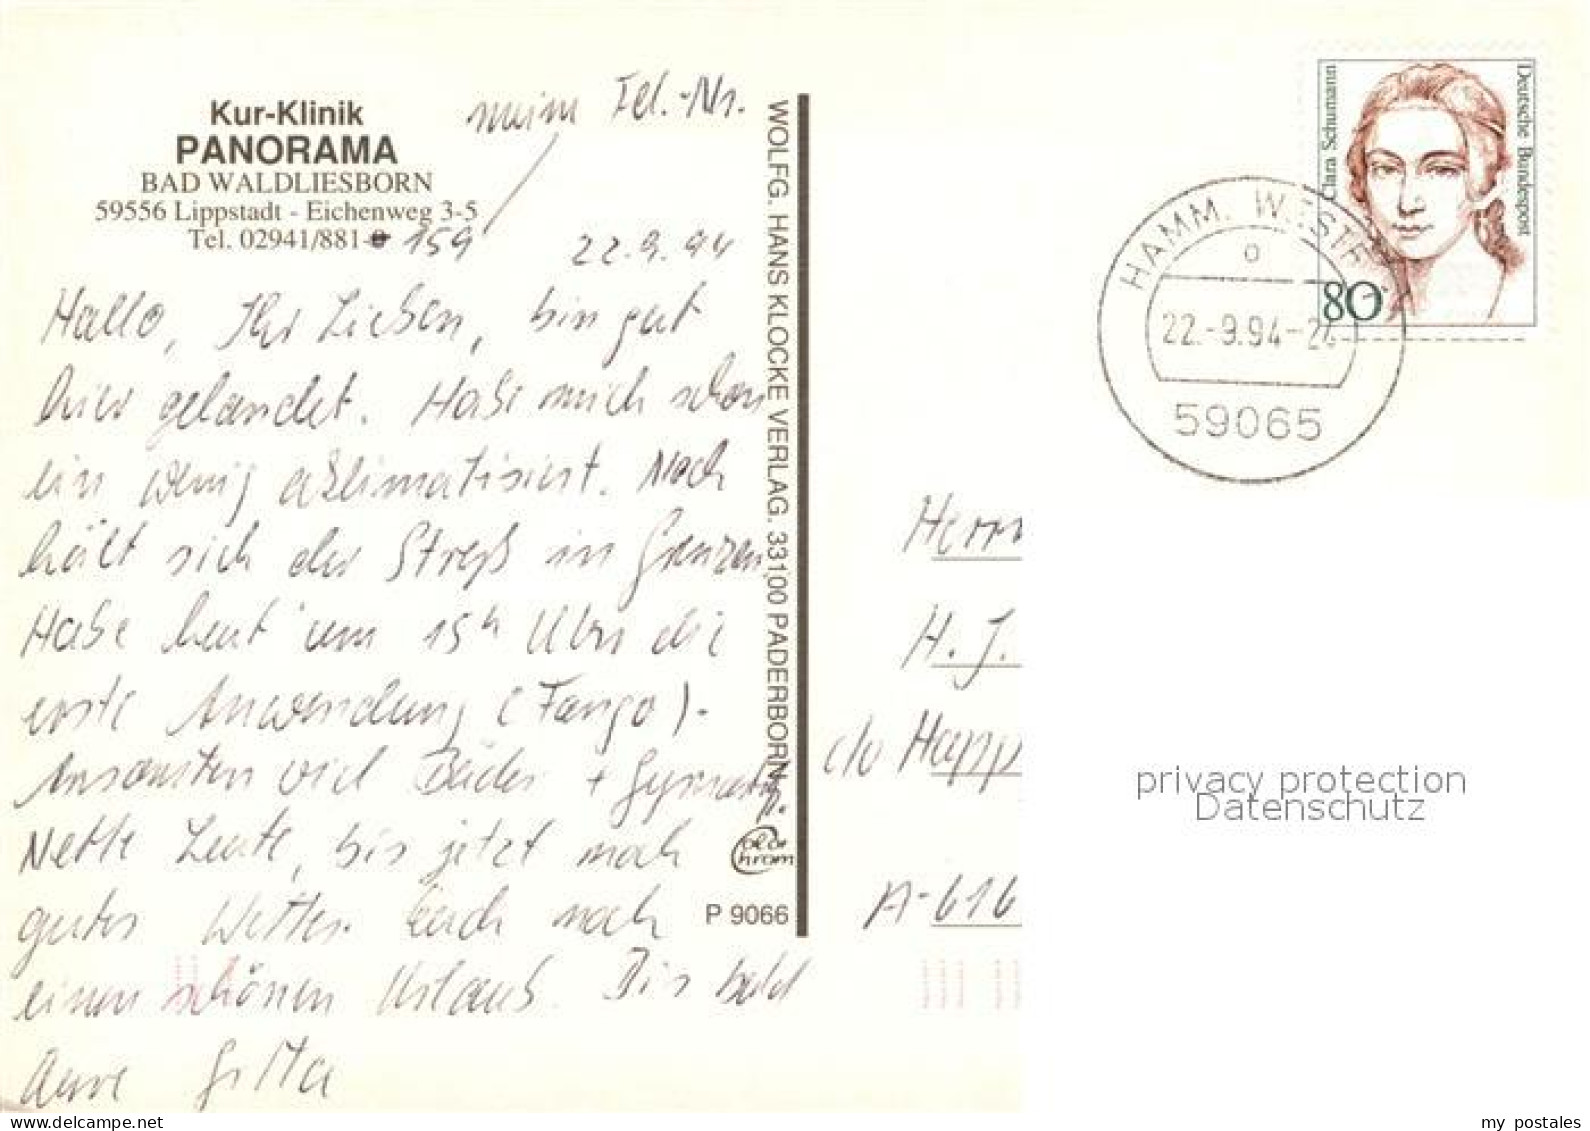 Kur-Klinik
PANORAMA
BAD WALDLIESBORN
59556 Lippstadt - Eichenweg 3-5
Tel. 02941/881- 159
mein Tel.-Nr.
22.9.94
Hallo, Ihr Lieben, bin gut
hier gelandet. Habe mich schon
ein wenig aklimatisiert. Noch
hält sich der Streß in Grenzen.
Habe heut um 15h Uhr die
erste Anwendung (Fango).
Ansonsten viel Bäder + Gymnastik.
Nette Leute, bis jetzt noch
gutes Wetter. Euch noch
einen schönen Urlaub. Bis bald
Eure Gitta
WOLFG. HANS KLOCKE VERLAG. 33100 PADERBORN
P 9066
Clara Schumann
Deutsche Bundespost
80
HAMM, WESTF
22.-9.94-24
59065
Herrn
H. J.
c/o Happ
A-616
privacy protection
Datenschutz
my postales